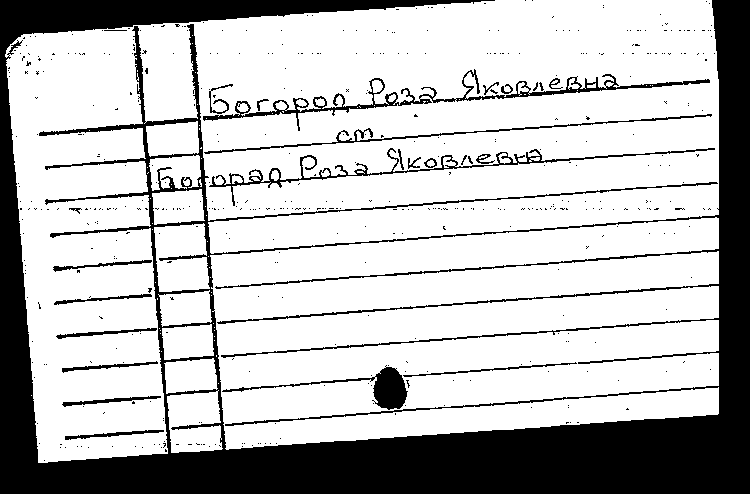 Богород Роза Яковлевна
ст.
Богорад Роза Яковлевна